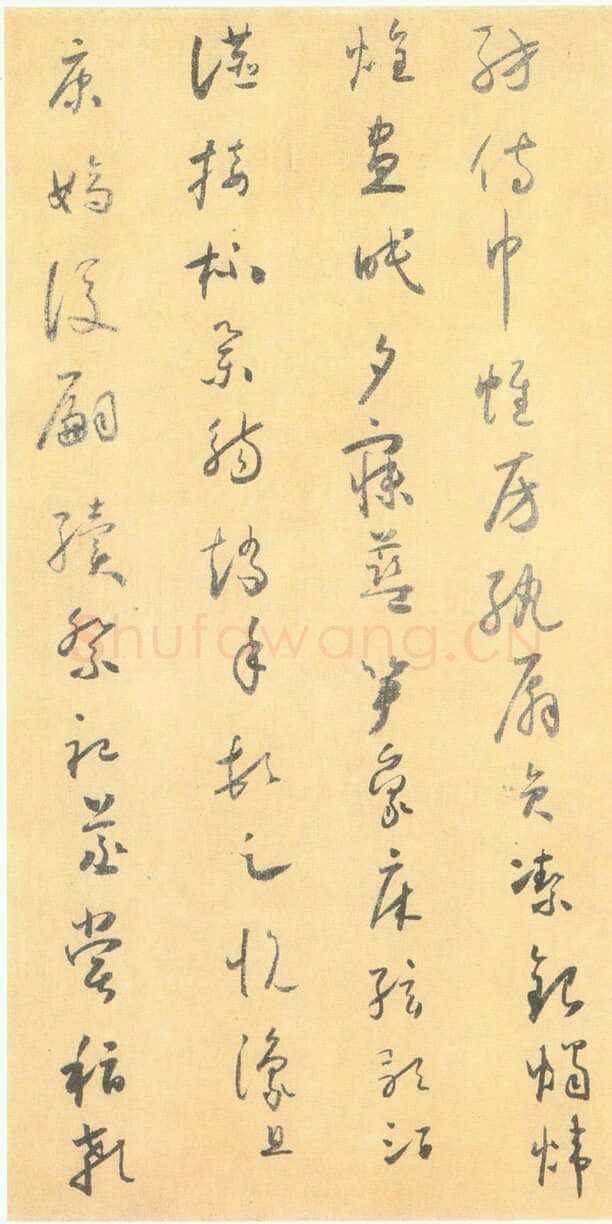 紡侍巾帷房紈扇員潔銀燭煒
煌晝眠夕寐藍笋象床弦歌酒
讌接杯舉觴矯手頓足悅豫且
康嫡後嗣續祭祀蒸嘗稽顙
Shufawang.CN